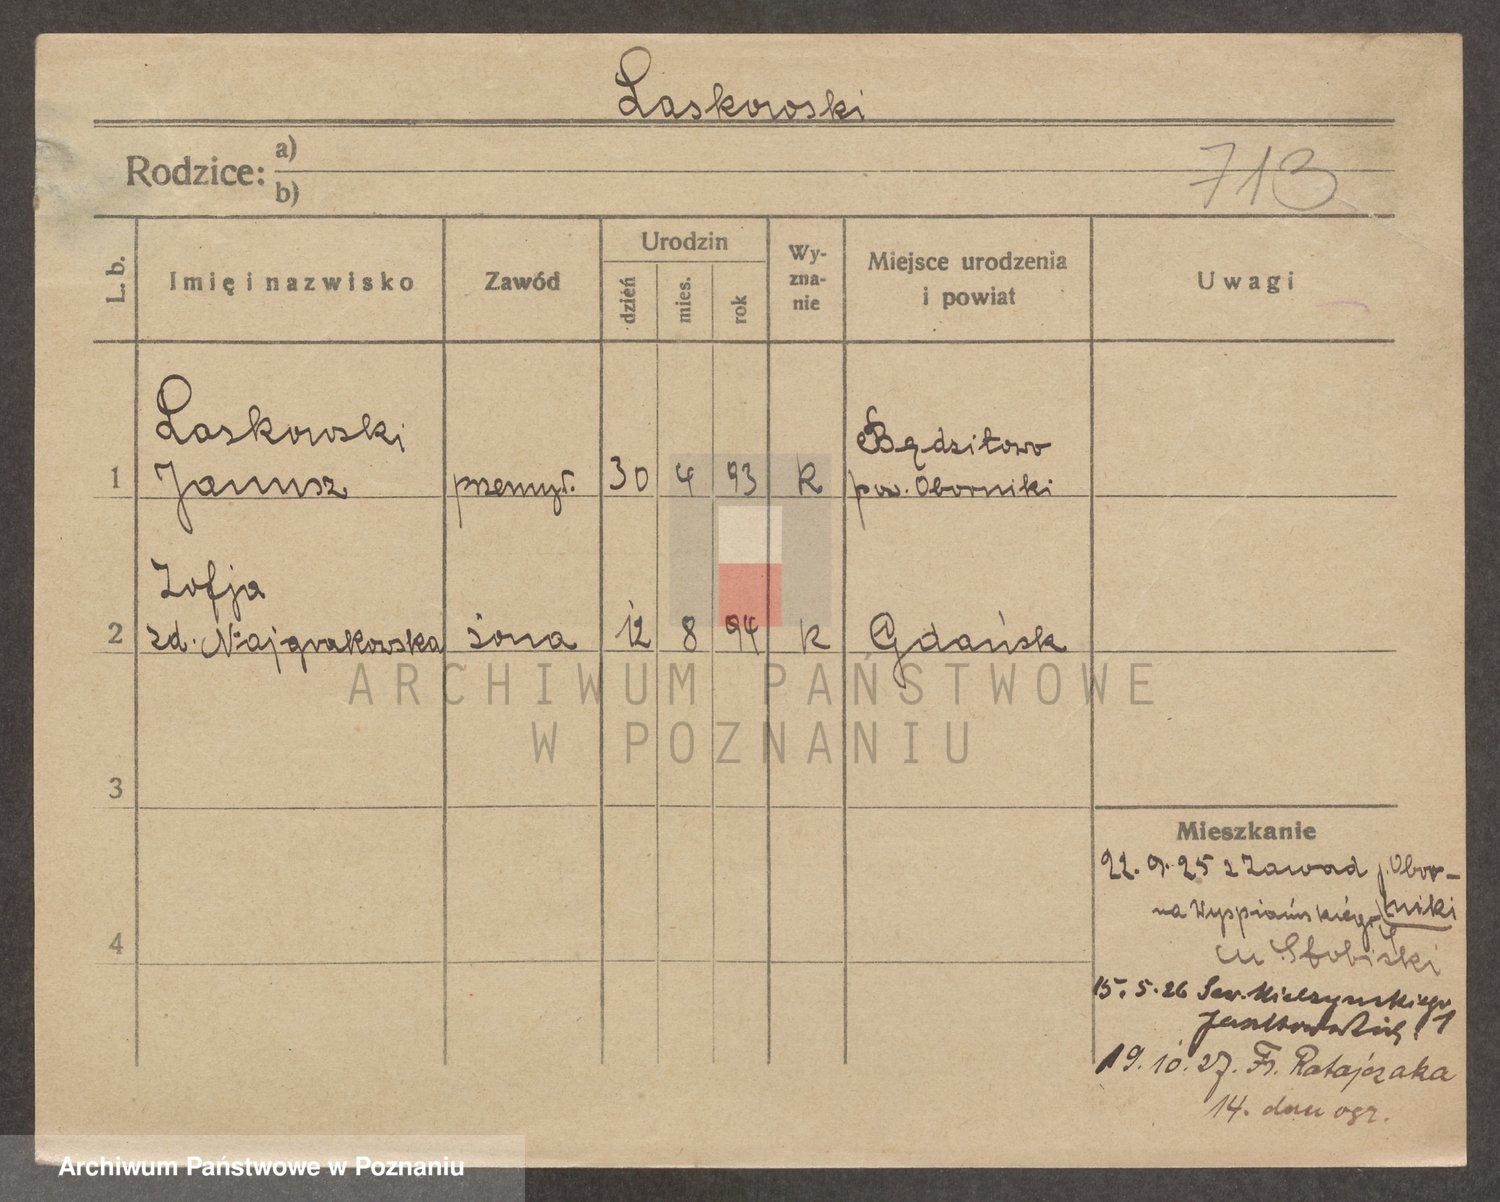 Laskowski
Rodzice: a)
b)
713
L. b.
Imię i nazwisko
Zawód
Urodzin
dzień
mies.
rok
Wy-
zna-
nie
Miejsce urodzenia
i powiat
Uwagi
Laskowski
1 Janusz przemysł. 30 4 93 k
Będzitowo
pow. Oborniki
Zofja
2 zd. Najgrakowska żona 12 8 94 k Gdańsk
ARCHIWUM PAŃSTWOWE
W POZNANIU
3
4
Mieszkanie
22. 9. 25 z Zawad p. Obor-
niki
na Wyspiańskiego
15. 5. 26 Sew. Mielżyńskiego
1
19. 10. 27. Fr. Ratajczaka
14. dom ogr.
Archiwum Państwowe w Poznaniu